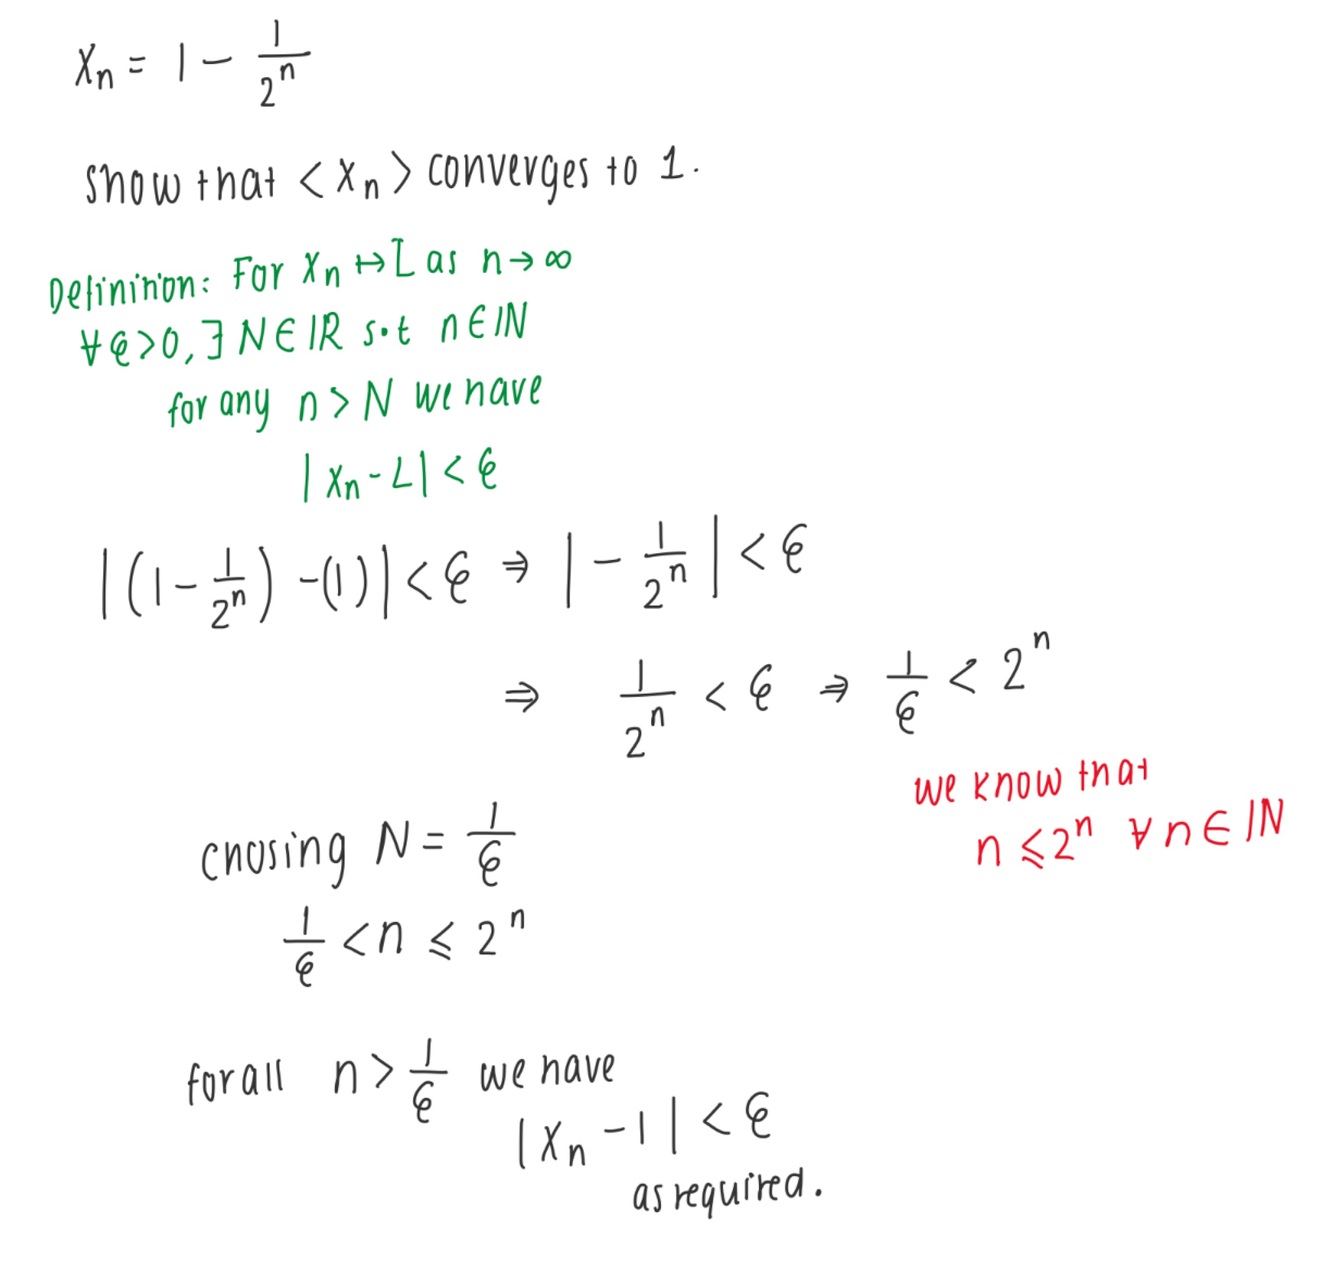 xₙ = 1 - 1/2ⁿ
show that <xₙ> converges to 1.
Definition: For xₙ ↦ L as n → ∞
∀ϵ>0, ∃ N∈ℝ s.t n∈ℕ
for any n > N we have
|xₙ - L| < ϵ
|(1 - 1/2ⁿ) - (1)| < ϵ ⇒ |- 1/2ⁿ| < ϵ
⇒ 1/2ⁿ < ϵ ⇒ 1/ϵ < 2ⁿ
we know that
n ⩽ 2ⁿ ∀ n ∈ ℕ
chosing N = 1/ϵ
1/ϵ < n ⩽ 2ⁿ
for all n > 1/ϵ we have
|xₙ - 1| < ϵ
as required.